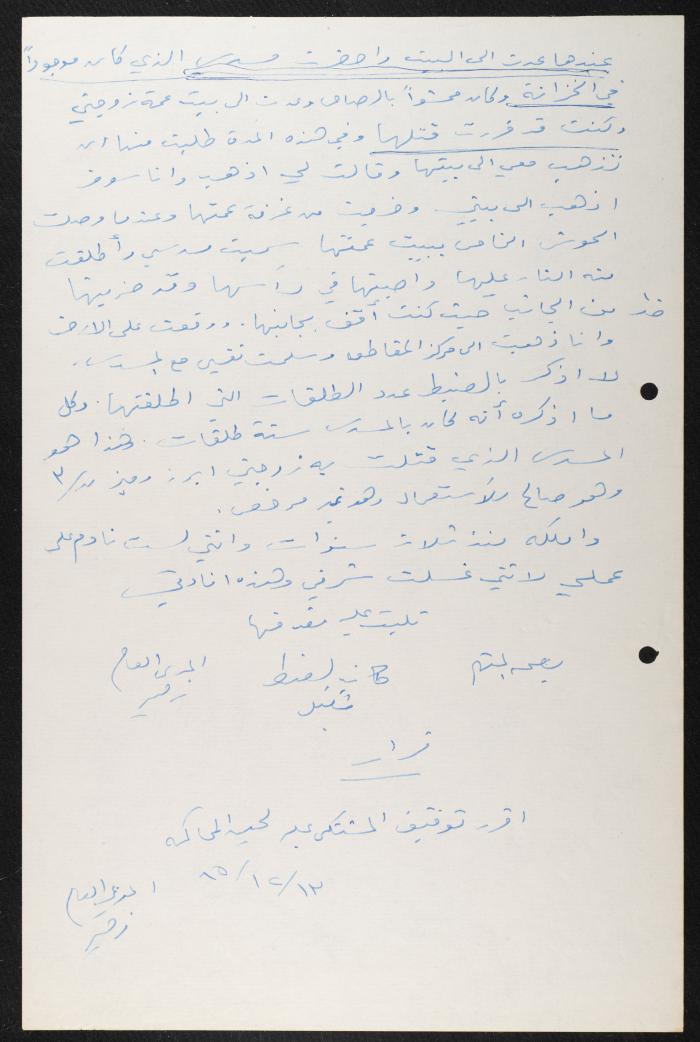 عندها عدت الى البيت واحضرت مسدسي الذي كان موجوداً
في الخزانة وكان محشواً بالرصاص وعدت الى بيت عمة زوجتي
وكنت قد قررت قتلها وفي هذه المرة طلبت منها ان
تذهب معي الى بيتها وقالت لي اذهب وانا سوف
اذهب الى بيتي وخرجت من غرفة عمتها وعندما وصلت
الحوش الخاص ببيت عمتها سحبت مسدسي وأطلقت
منه النار عليها واصبتها في رأسها وقد ضربتها
من الجانب حيث كنت أقف بجانبها. ووقعت على الارض
وانا ذهبت الى مركز المقاطعة وسلمت نفسي مع المسدس.
لا اذكر بالضبط عدد الطلقات التي اطلقتها. وكل
ما اذكره أنه كان بالمسدس ستة طلقات. وهذا هو
المسدس الذي قتلت به زوجتي ابرز وميز ن/٣
وهو صالح للاستعمال وهو غير مرخص.
واملكه منذ ثلاث سنوات وانني لست نادم على
عملي لانني غسلت شرفي وهذه افادتي
تليت عليه فصدقها
بصمة المتهم كاتب الضبط المدعي العام
زهير
قرار
اقرر توقيف المشتكى عليه لحين المحاكمة
٨٥/١٢/١٣
المدعي العام
زهير